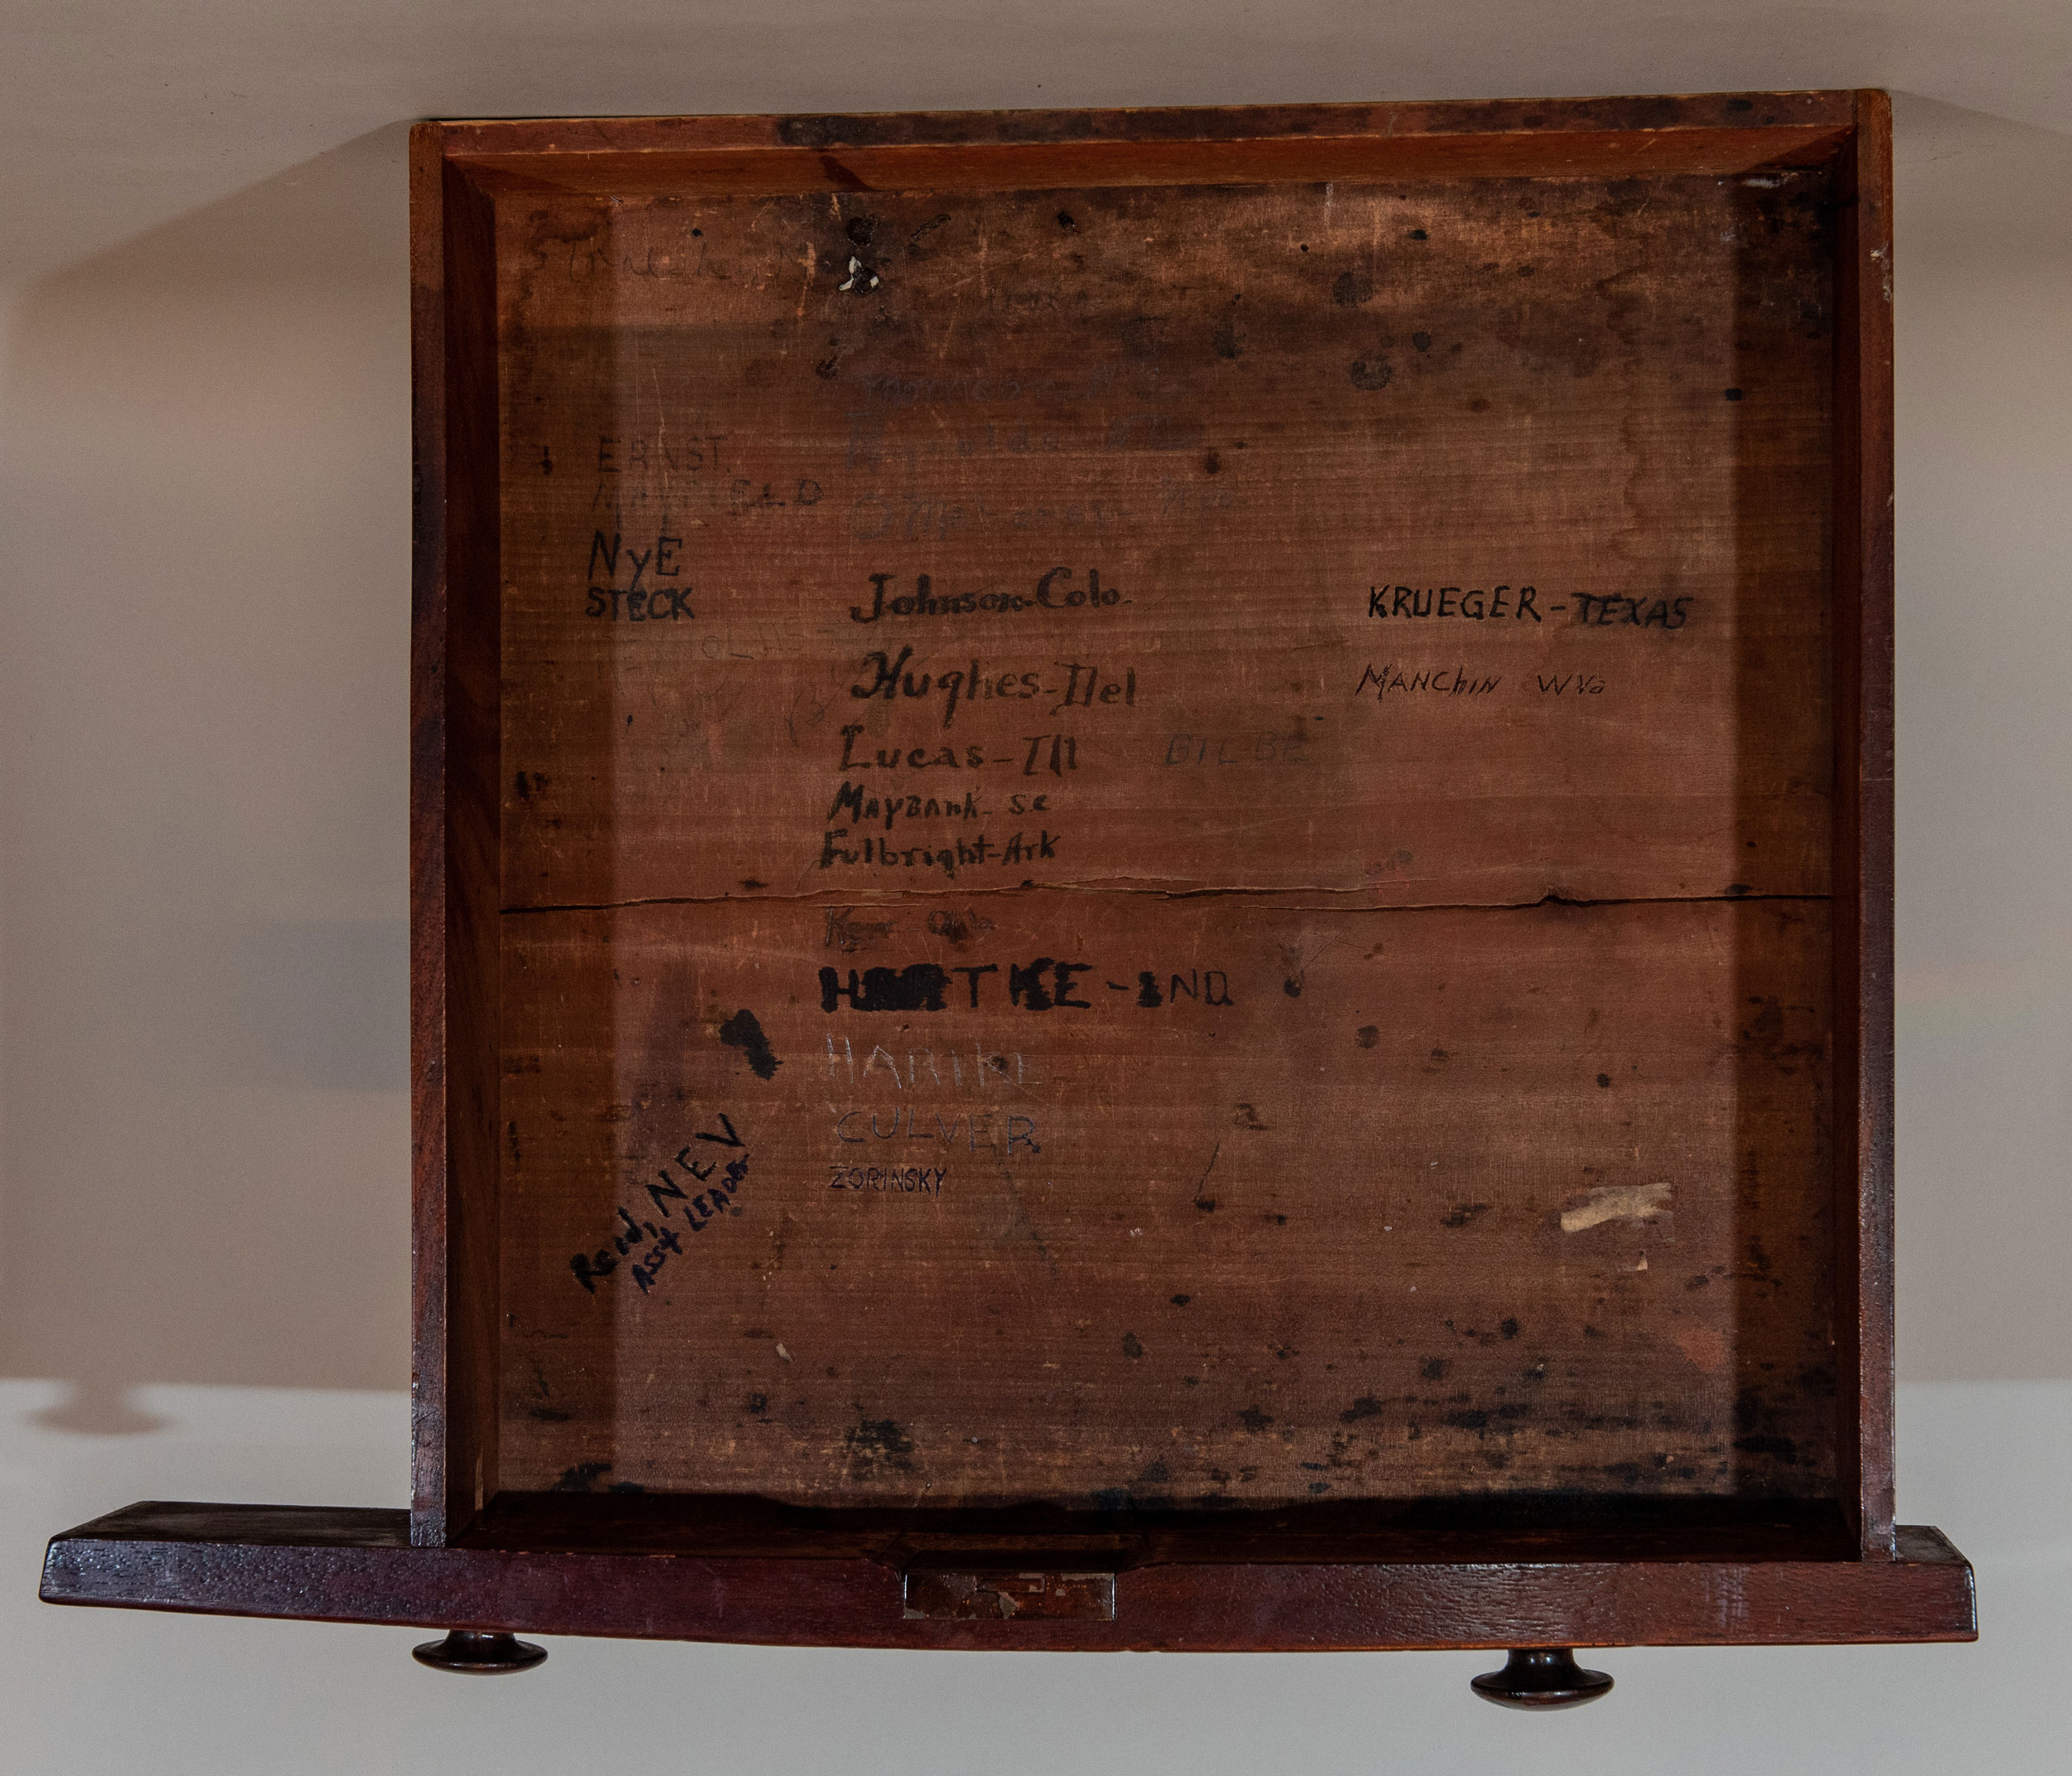 ERNST.
MAYFIELD
NyE
STECK
Reynolds - N.C.
O'Mahoney - Wyo
Johnson-Colo.
Hughes-Del
Lucas-Ill
BILBE
MAYBANK-SC
Fulbright-Ark
Kerr Okla
HARTKE-IND
HARTKE
CULVER
ZORINSKY
Reid, NEV
ASST LEADER
KRUEGER-TEXAS
MANChIN WVa